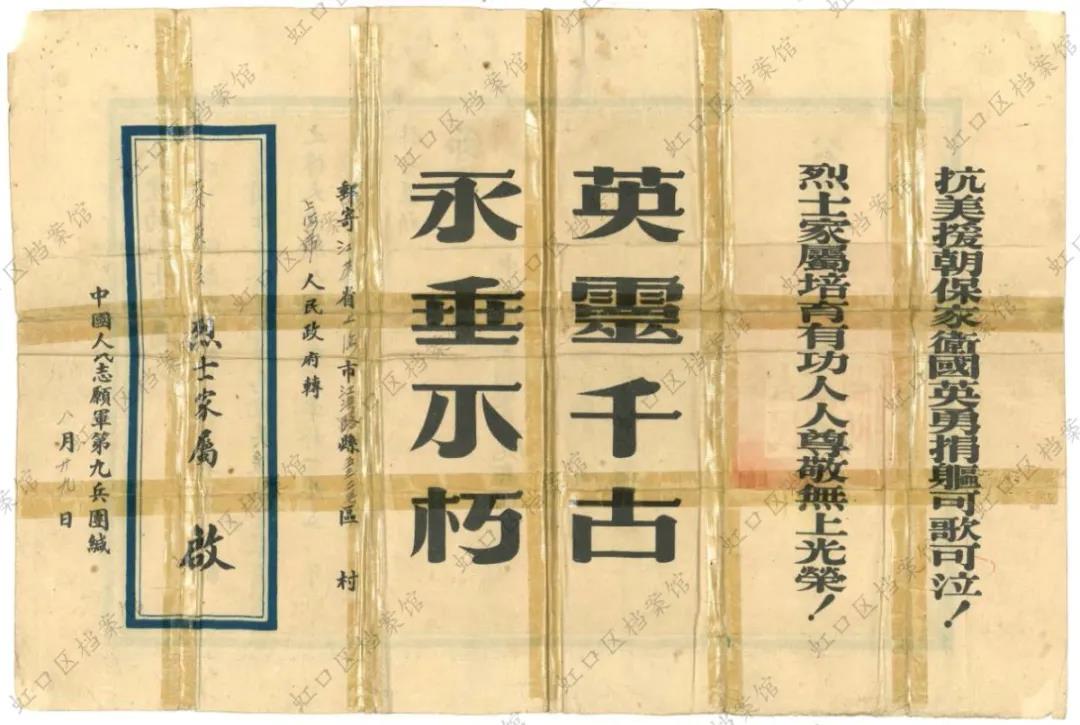 抗美援朝保家衛國英勇捐軀可歌可泣！
烈士家屬培育有功人人尊敬無上光榮！
英靈千古
永垂不朽
郵寄江 省上海市 縣 區 村
上海市人民政府轉
烈士家屬 啟
中國人民志願軍第九兵團緘
八月廿九日
虹口区档案馆